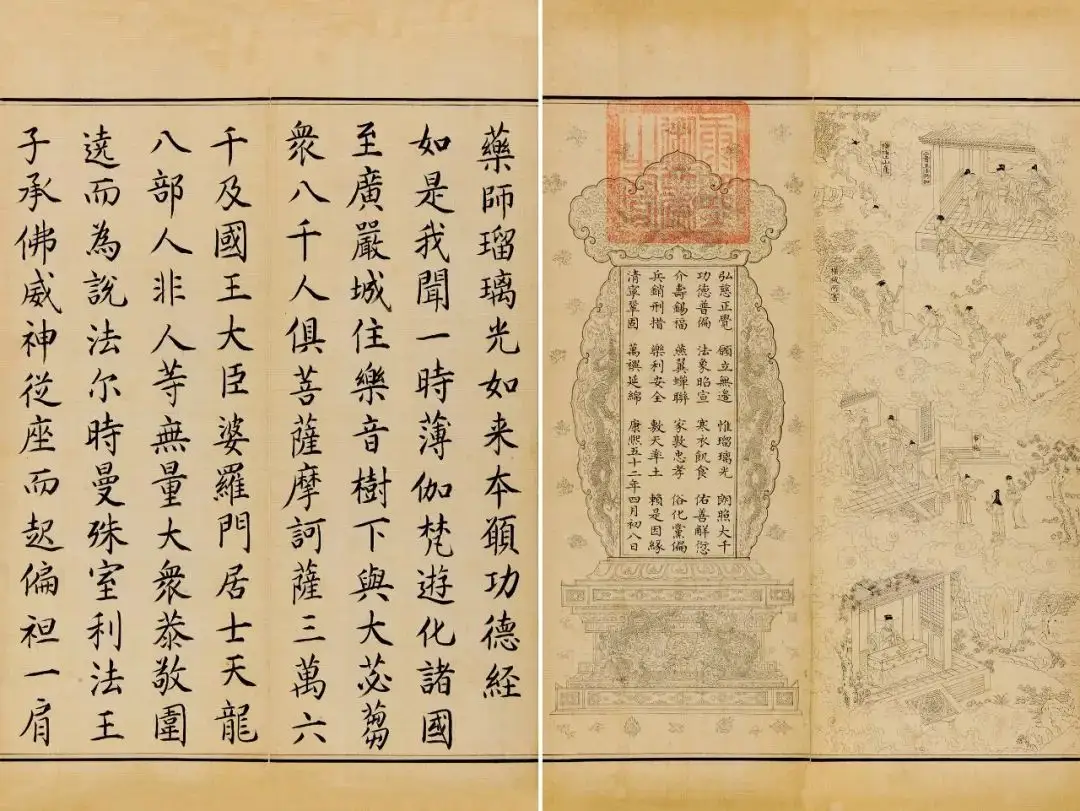 藥師瑠璃光如来本願功德經
如是我聞一時薄伽梵遊化諸國
至廣嚴城住樂音樹下與大苾蒭
衆八千人俱菩薩摩訶薩三萬六
千及國王大臣婆羅門居士天龍
八部人非人等無量大衆恭敬圍
遶而為說法尔時曼殊室利法王
子承佛威神從座而起偏袒一肩
弘慈正覺 願立無邊 惟瑠璃光 朗照大千
功德普徧 法象昭宣 寒衣飢食 佑善解愆
介壽錫福 燕翼蟬聯 家敦忠孝 俗化黨偏
兵銷刑措 樂利安全 敷天率土 賴是因緣
清寧鞏固 萬禩延綿 康熙五十二年四月初八日